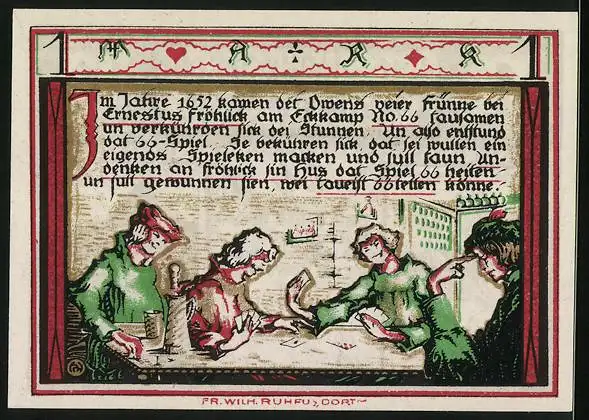 1 MARK 1
Im Jahre 1652 kamen det Owens veier Frünne bei
Ernestus Fröhlick am Eckkamp No. 66 tausamen
un verkührden sick dei Stunnen. An also entstund
dat 66-Spiel. Se bekühren sick, dat sei wullen ein
eigends Spieleken macken und sull taun An-
denken an Fröhlick sin Hus dat Spiel 66 heiten
un sull gewunnen sien, wei tauerst 66 tellen könne.
FR. WILH. RUHFUS, DORTM